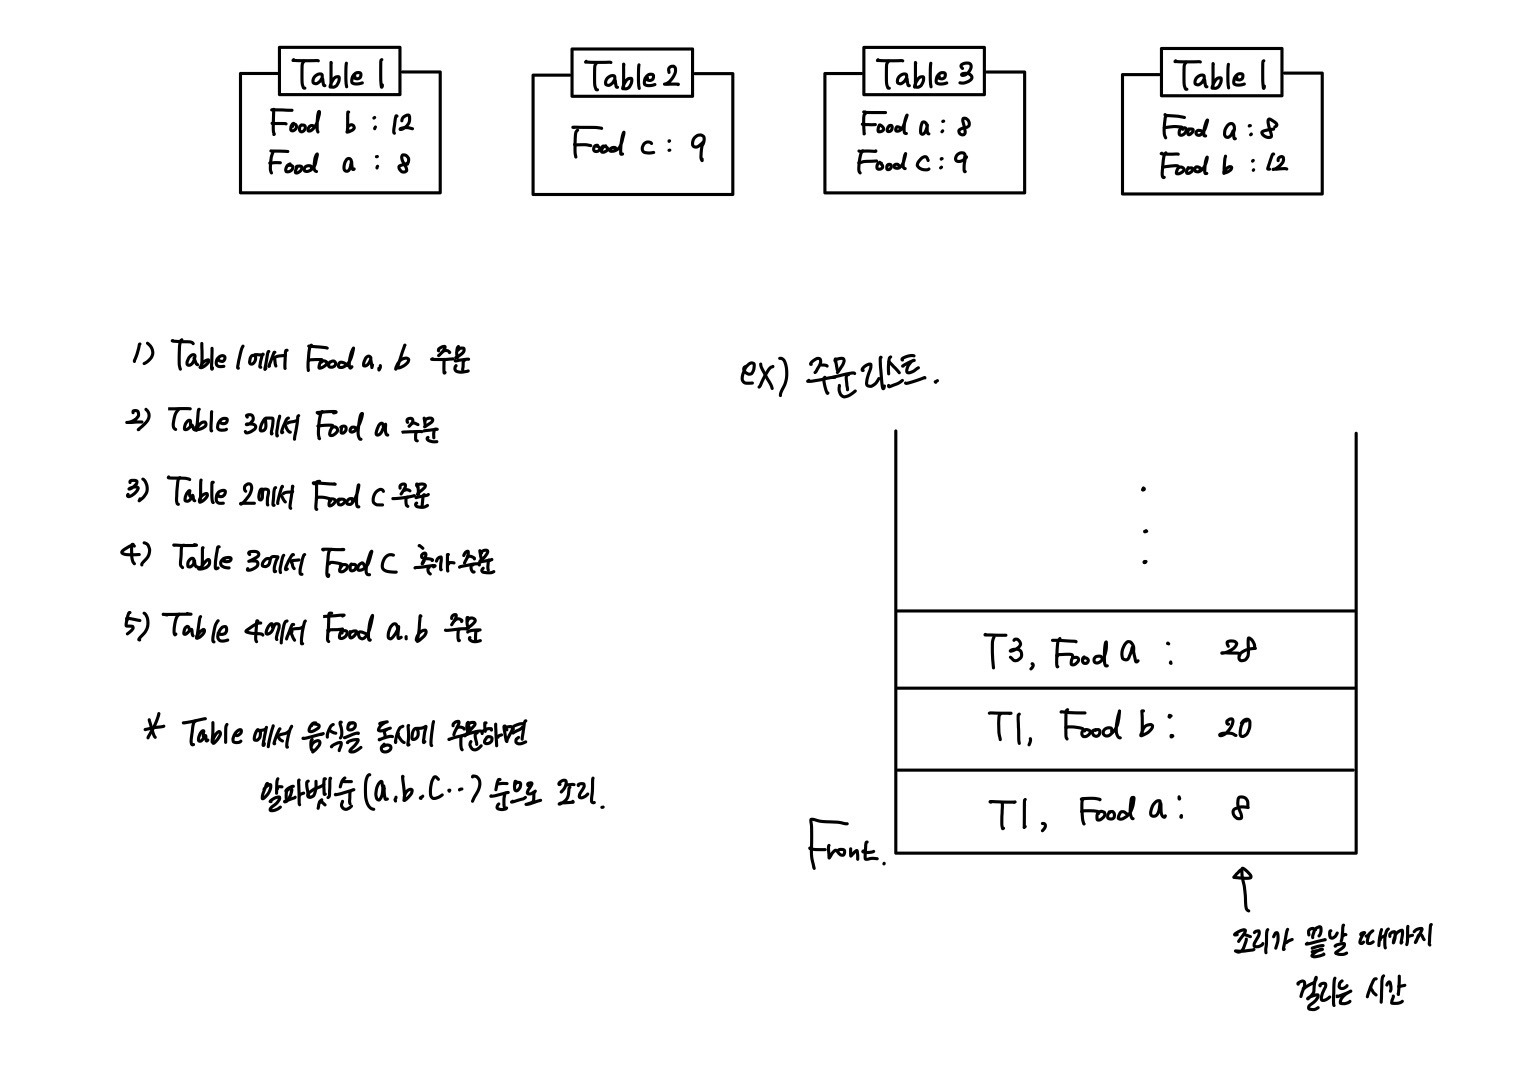 Table 1
Food b : 12
Food a : 8
Table 2
Food c : 9
Table 3
Food a : 8
Food c : 9
Table 1
Food a : 8
Food b : 12
1) Table 1에서 Food a, b 주문
2) Table 3에서 Food a 주문
3) Table 2에서 Food C 주문
4) Table 3에서 Food C 추가 주문
5) Table 4에서 Food a.b 주문
* Table 에서 음식을 동시에 주문하면
알파벳순 (a.b.c...) 순으로 조리.
ex) 주문 리스트.
T3, Food a : 28
T1, Food b : 20
T1, Food a : 8
Front.
조리가 끝날 때까지
걸리는 시간